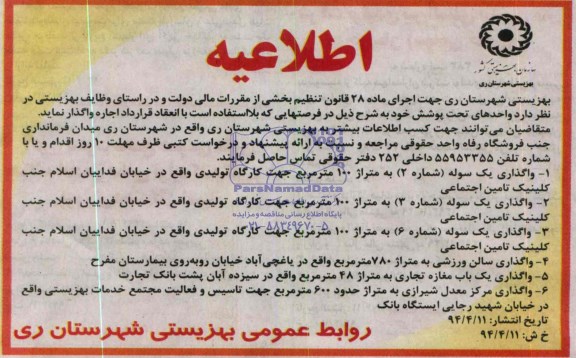 اطلاعیه
سازمان بهزیستی کشور
بهزیستی شهرستان ری
بهزیستی شهرستان ری جهت اجرای ماده ۲۸ قانون تنظیم بخشی از مقررات مالی دولت و در راستای وظایف بهزیستی در
نظر دارد واحدهای تحت پوشش خود به شرح ذیل در فرصتهایی که بلااستفاده است با انعقاد قرارداد اجاره واگذار نماید.
متقاضیان می‌توانند جهت کسب اطلاعات بیشتر به بهزیستی شهرستان ری واقع در شهرستان ری میدان فرمانداری
جنب فروشگاه رفاه واحد حقوقی مراجعه و نسبت به ارائه پیشنهاد و درخواست کتبی ظرف مهلت ۱۰ روز اقدام و یا با
شماره تلفن ۵۵۹۵۳۳۵۵ داخلی ۲۵۲ دفتر حقوقی تماس حاصل فرمایند.
۱- واگذاری یک سوله (شماره ۲) به متراژ ۱۰۰ مترمربع جهت کارگاه تولیدی واقع در خیابان فدائیان اسلام جنب
کلینیک تامین اجتماعی
۲- واگذاری یک سوله (شماره ۳) به متراژ ۱۰۰ مترمربع جهت کارگاه تولیدی واقع در خیابان فدائیان اسلام جنب
کلینیک تامین اجتماعی
۳- واگذاری یک سوله (شماره ۶) به متراژ ۱۰۰ مترمربع جهت کارگاه تولیدی واقع در خیابان فدائیان اسلام جنب
کلینیک تامین اجتماعی
۴- واگذاری سالن ورزشی به متراژ ۷۸۰مترمربع واقع در یاغچی‌آباد خیابان روبه‌روی بیمارستان مفرح
۵- واگذاری یک باب مغازه تجاری به متراژ ۴۸ مترمربع واقع در سیزده آبان پشت بانک تجارت
۶- واگذاری مرکز معدل شیرازی به متراژ حدود ۶۰۰ مترمربع جهت تاسیس و فعالیت مجتمع خدمات بهزیستی واقع
در خیابان شهید رجایی ایستگاه بانک
تاریخ انتشار: ۹۴/۴/۱۱
خ ش: ۹۴/۴/۱۱
روابط عمومی بهزیستی شهرستان ری
ParsNamadData
پایگاه اطلاع رسانی مناقصه و مزایده
۰۲۱-۸۸۳۴۹۶۷۰-۵